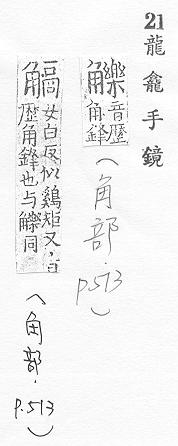 21 龍龕手鏡
觻 音歷角鋒
(角部.p.513)
女白反似鷄矩又音歷角鋒也与觻同
(角部.p.513)